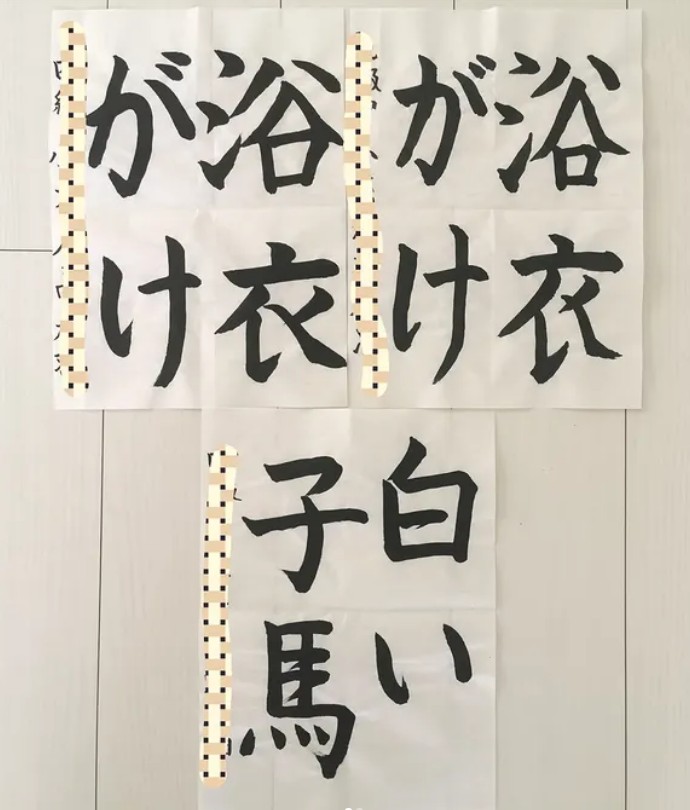 浴衣
がけ
浴衣
がけ
白い
子馬